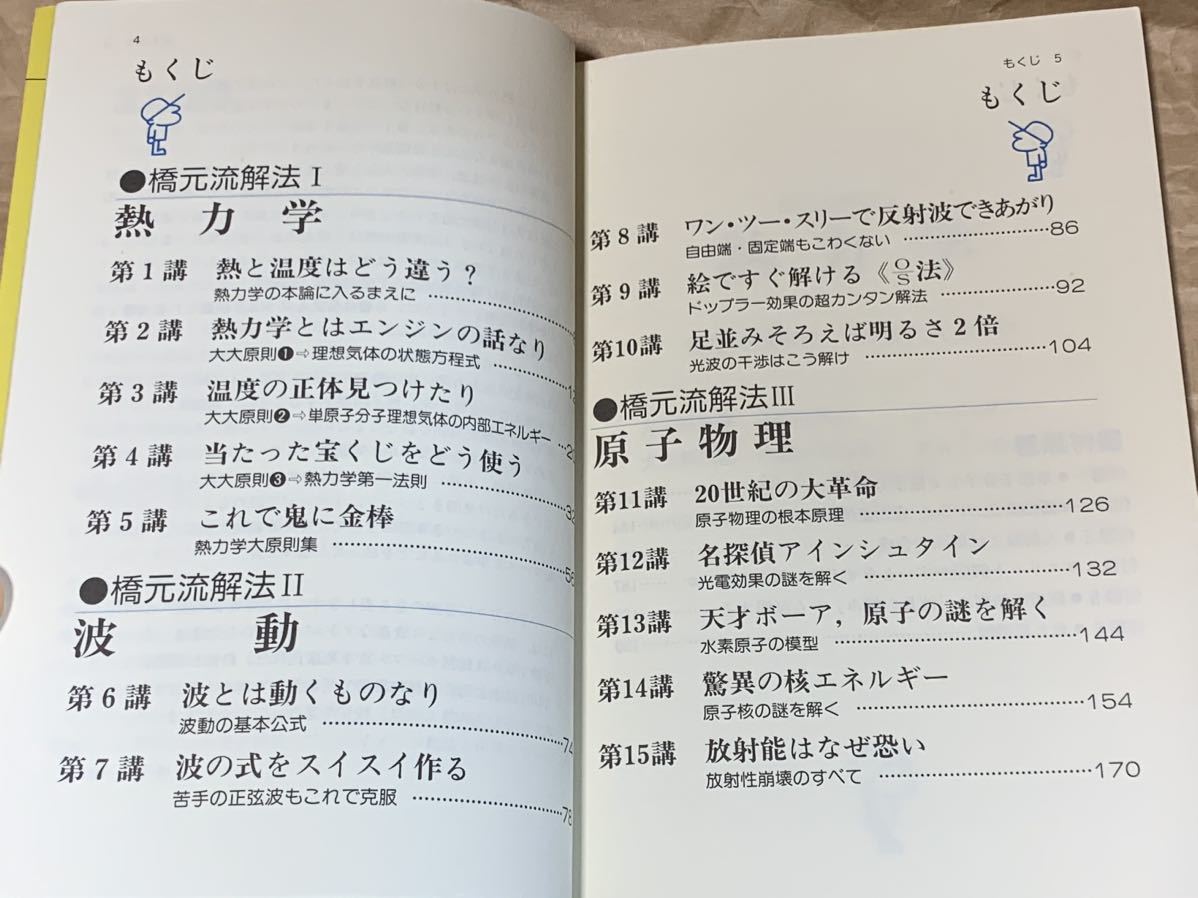 4
もくじ
●橋元流解法Ⅰ
熱力学
第1講 熱と温度はどう違う？
熱力学の本論に入るまえに
第2講 熱力学とはエンジンの話なり
大大原則❶⇨理想気体の状態方程式
第3講 温度の正体見つけたり
大大原則❷⇨単原子分子理想気体の内部エネルギー
第4講 当たった宝くじをどう使う
大大原則❸⇨熱力学第一法則
第5講 これで鬼に金棒
熱力学大原則集
●橋元流解法Ⅱ
波動
第6講 波とは動くものなり
波動の基本公式……74
第7講 波の式をスイスイ作る
苦手の正弦波もこれで克服……78
もくじ 5
もくじ
第8講 ワン・ツー・スリーで反射波できあがり
自由端・固定端もこわくない……86
第9講 絵ですぐ解ける《O/S法》
ドップラー効果の超カンタン解法……92
第10講 足並みそろえば明るさ2倍
光波の干渉はこう解け……104
●橋元流解法Ⅲ
原子物理
第11講 20世紀の大革命
原子物理の根本原理……126
第12講 名探偵アインシュタイン
光電効果の謎を解く……132
第13講 天才ボーア，原子の謎を解く
水素原子の模型……144
第14講 驚異の核エネルギー
原子核の謎を解く……154
第15講 放射能はなぜ恐い
放射性崩壊のすべて……170